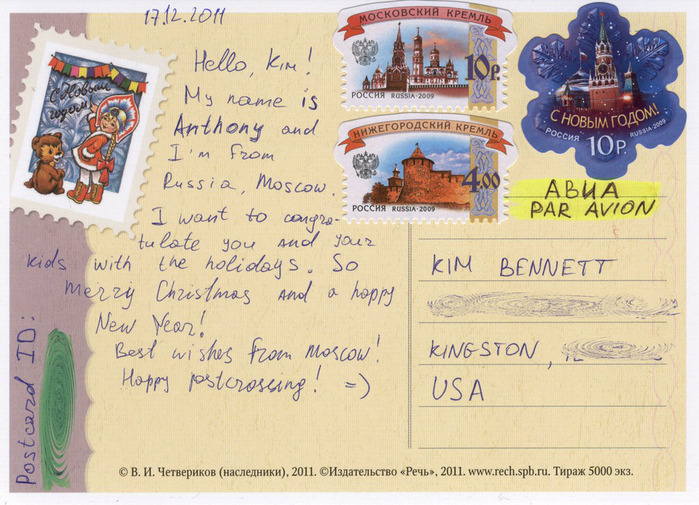 17.12.2011
Hello, Kim!
My name is
Anthony and
I'm from
Russia, Moscow.
I want to congra-
tulate you and your
kids with the holidays. So
Merry Christmas and a happy
New Year!
Best wishes from Moscow!
Happy postcrossing! =)
Postcard ID:
С Новым
годом!
МОСКОВСКИЙ КРЕМЛЬ
10 Р.
РОССИЯ RUSSIA·2009
НИЖЕГОРОДСКИЙ КРЕМЛЬ
4.00
РОССИЯ RUSSIA·2009
С НОВЫМ ГОДОМ!
РОССИЯ RUSSIA·2009
10 Р.
АВИА
PAR AVION
KIM BENNETT
KINGSTON,
USA
© В. И. Четвериков (наследники), 2011. ©Издательство «Речь», 2011. www.rech.spb.ru. Тираж 5000 экз.